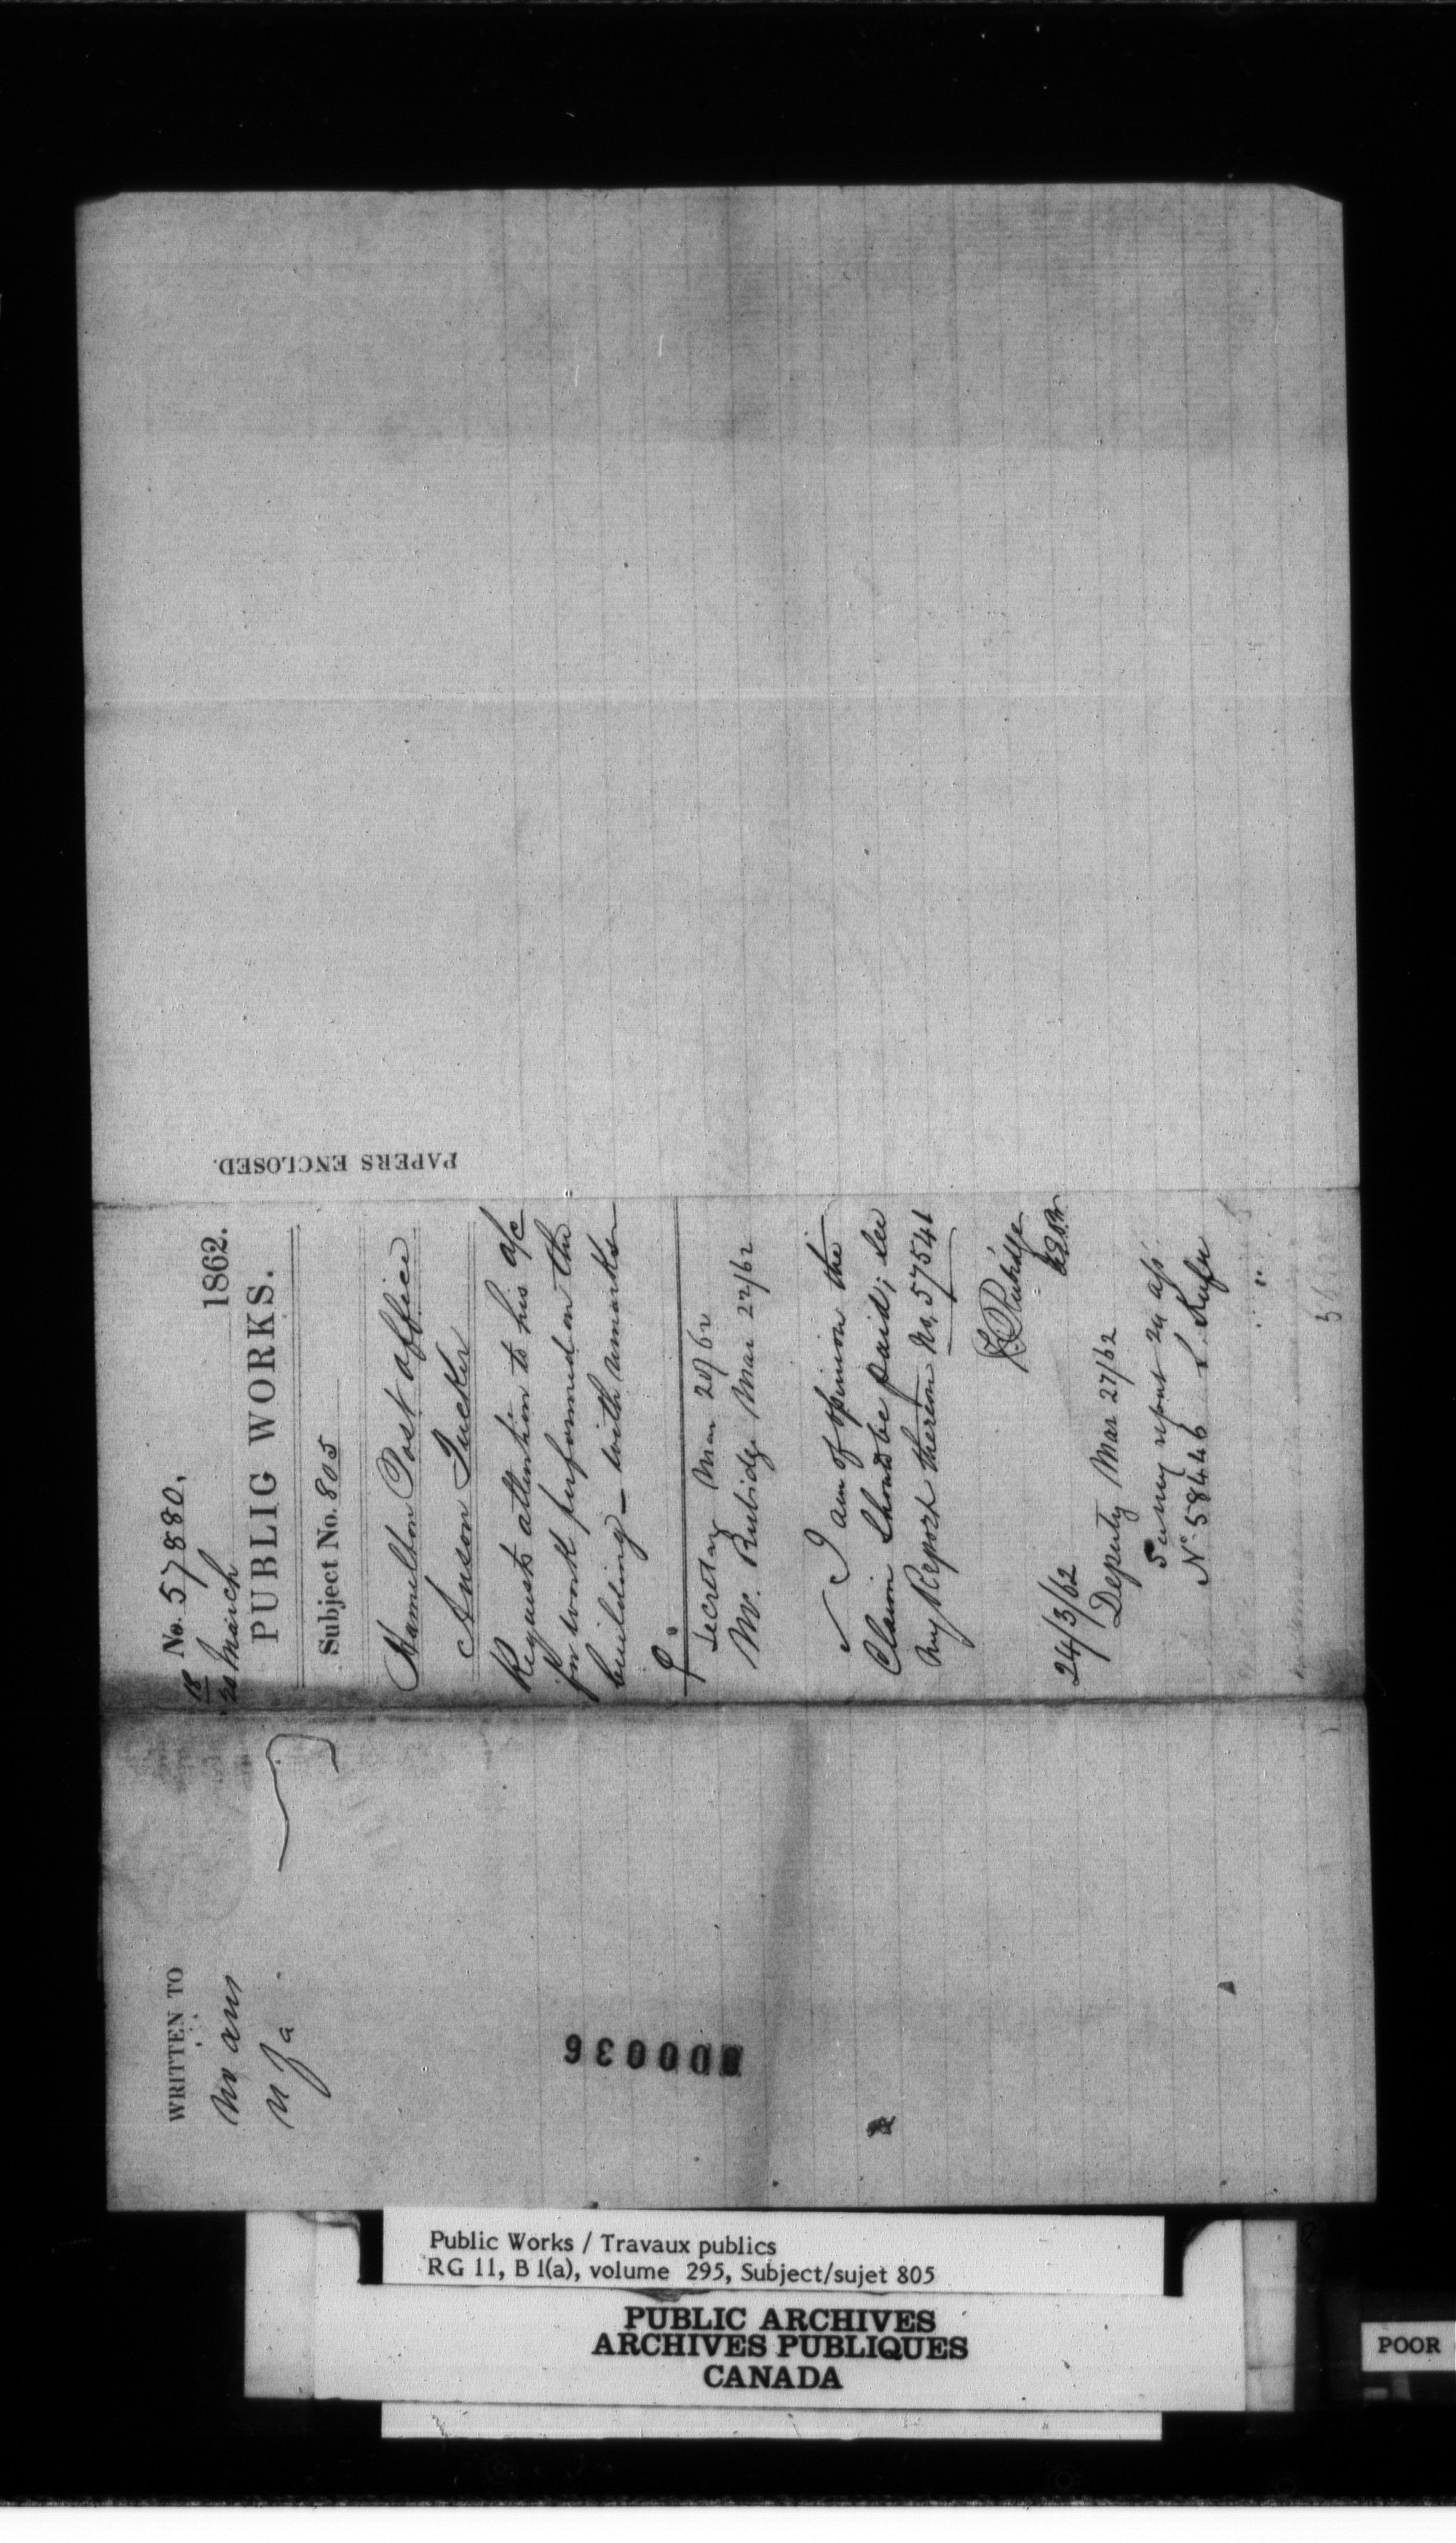 No. 57880.
18
20 March 1862.
PUBLIC WORKS.
Subject No. 805
Hamilton Post Office
Anson Tucker
Requests attention to his a/c
for work performed on the
building — with remarks
Secretary Mar 20/62
Mr. Rubidge Mar 22/62
I am of opinion the
Claim should be paid; see
my Report thereon No. 57541
F.P. Rubidge
24/3/62
Deputy Mar 27/62
No. 58446
PAPERS ENCLOSED.
WRITTEN TO
000036
Public Works / Travaux publics
RG 11, B 1(a), volume 295, Subject/sujet 805
PUBLIC ARCHIVES
ARCHIVES PUBLIQUES
CANADA
POOR